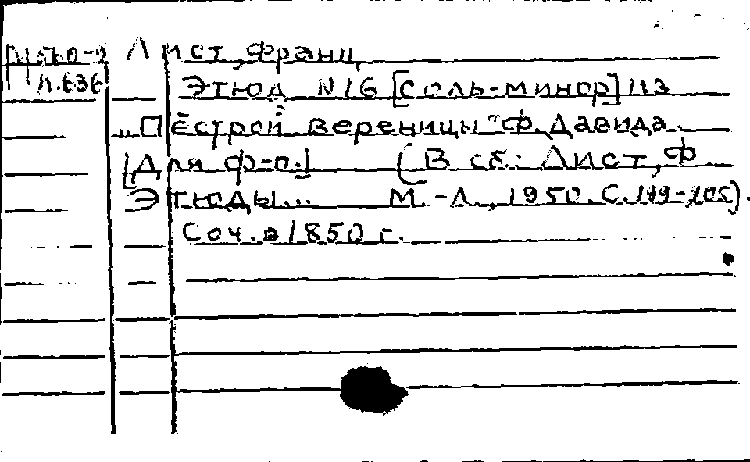 Лист, Франц
Л.636 Этюд N16 [соль-минор] из
„Пёстрой вереницы" Ф. Давида.
[Для ф-п.] (В сб.: Лист, Ф.
Этюды... М.-Л., 1950. С.
Соч. в 1850 г.